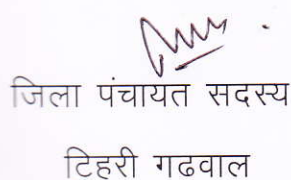 जिला पंचायत सदस्य
टिहरी गढवाल